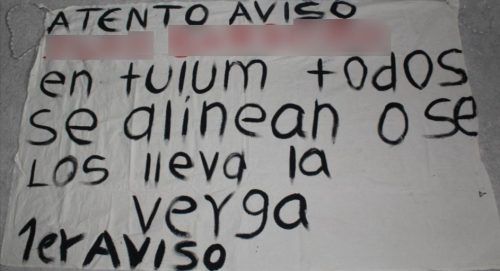 ATENTO AVISO
en tulum todos
se alinean o se
LOS lleva la
verga
1er AVISO